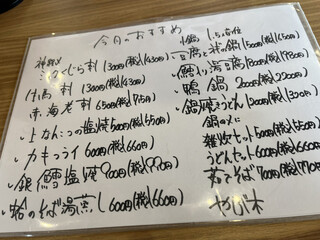 今月のおすすめ
くじら刺 1300円(税込1430)
馬刺 1300円(税込1430)
赤海老刺 650円(税込715円)
上カルビの塩焼 500円(税込550)
カキフライ 600円(税込660円)
銀鱈塩焼 900円(税込990円)
そば湯蒸し 600円(税込660)
豆腐と 鍋 1500円(税込1650円)
鱈入り湯豆腐 1800円(税込1980円)
鴨鍋 2000円(税込2200円)
鍋焼きうどん 1200円(税込1320円)
鍋の〆に
雑炊セット 500円(税込550円)
うどんセット 600円(税込660円)
茹そば 700円(税込770円)